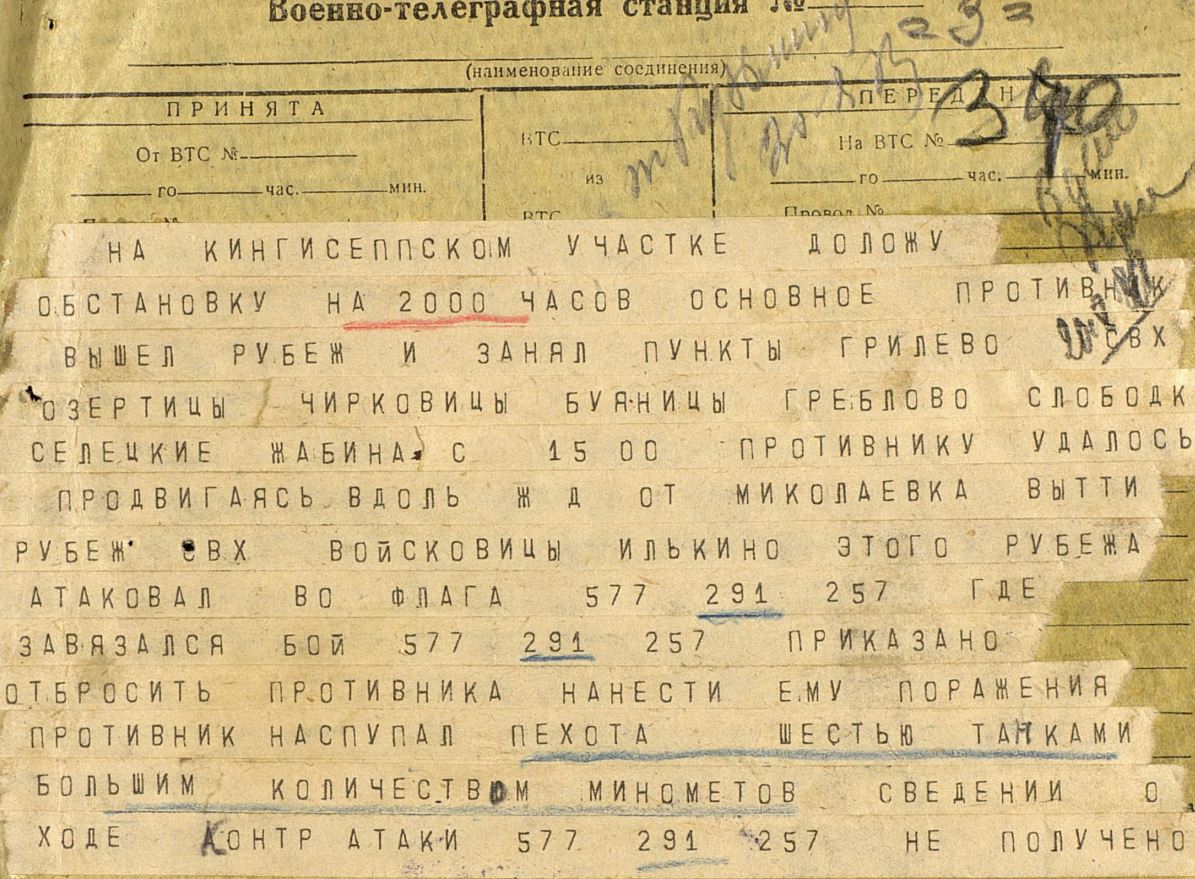 Военно-телеграфная станция №
= 3 =
(наименование соединения)
ПРИНЯТА
ПЕРЕДАН
340
От ВТС №
ВТС
На ВТС №
го час. мин.
из
го час. мин.
ВТС
Провод №
НА КИНГИСЕППСКОМ УЧАСТКЕ ДОЛОЖУ
ОБСТАНОВКУ НА 2000 ЧАСОВ ОСНОВНОЕ ПРОТИВНИК
ВЫШЕЛ РУБЕЖ И ЗАНЯЛ ПУНКТЫ ГРИЛЕВО СВХ
ОЗЕРТИЦЫ ЧИРКОВИЦЫ БУЯНИЦЫ ГРЕБЛОВО СЛОБОДК
СЕЛЕЦКИЕ ЖАБИНА С 15 00 ПРОТИВНИКУ УДАЛОСЬ
ПРОДВИГАЯСЬ ВДОЛЬ Ж Д ОТ МИКОЛАЕВКА ВЫТТИ
РУБЕЖ СВХ ВОЙСКОВИЦЫ ИЛЬКИНО ЭТОГО РУБЕЖА
АТАКОВАЛ ВО ФЛАГА 577 291 257 ГДЕ
ЗАВЯЗАЛСЯ БОЙ 577 291 257 ПРИКАЗАНО
ОТБРОСИТЬ ПРОТИВНИКА НАНЕСТИ ЕМУ ПОРАЖЕНИЯ
ПРОТИВНИК НАСПУПАЛ ПЕХОТА ШЕСТЬЮ ТАНКАМИ
БОЛЬШИМ КОЛИЧЕСТВОМ МИНОМЕТОВ СВЕДЕНИИ О
ХОДЕ КОНТР АТАКИ 577 291 257 НЕ ПОЛУЧЕНО